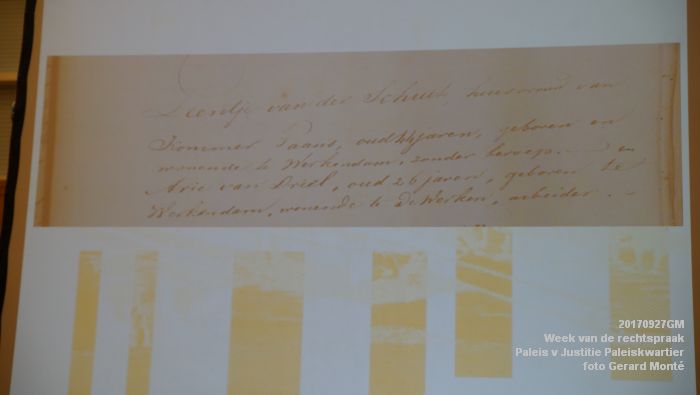 Leentje van der Schuit, huisvrouw van
Kommer Paans, oud 44 jaren, geboren en
wonende te Werkendam, zonder beroep. — en
Arie van Driel, oud 26 jaren, geboren te
Werkendam, wonende te de Werken, arbeider. —
20170927GM
Week van de rechtspraak
Paleis v Justitie Paleiskwartier
foto Gerard Monté